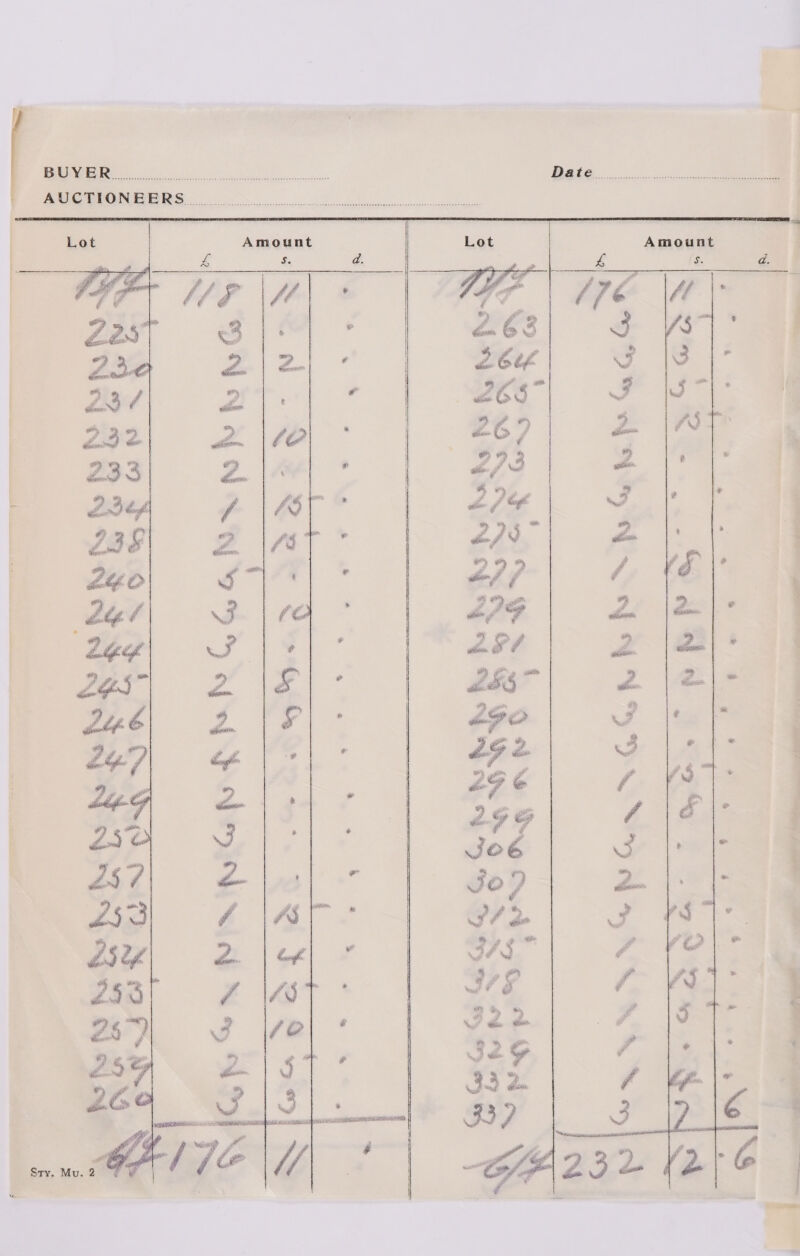 BUYER
Date
AUCTIONEERS
Lot Amount
£ s. d.
B/F 118 11 .
225 3 . .
230 2 2 .
231 2 . .
232 2 10 .
233 2 . .
234 1 15 .
238 2 15 .
240 5 . .
241 3 10 .
244 3 . .
245 2 8 .
246 2 8 .
247 4 . .
249 2 . .
250 3 . .
251 2 . .
253 1 15 .
254 2 4 .
255 1 15 .
257 3 10 .
259 2 5 .
260 3 3 .
C/F 176 11 .
Sty. Mu. 2
Lot Amount
£ s. d.
B/F 176 11 .
263 3 15 .
264 3 3 .
265 3 5 .
267 2 15 .
273 2 . .
274 3 . .
275 2 . .
277 1 18 .
279 2 2 .
281 2 2 .
285 2 2 .
290 3 . .
292 3 . .
296 1 15 .
299 1 8 .
306 3 . .
307 2 . .
312 3 15 .
315 1 10 .
318 1 15 .
322 1 5 .
329 1 . .
332 1 4 .
337 3 7 6
C/F 232 12 . 6